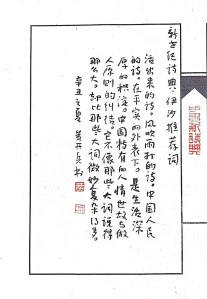 新世纪诗典·伊沙推荐词
活出来的诗。风吹雨打的诗。中国人民
的诗。在平实的外表下。是生活深
厚的积淀。中国特有的人情世故与做
人原则的纠结。它不像那些大词说得
那么大。却比那些大词微妙复杂得多。
辛丑之夏 黄开兵书